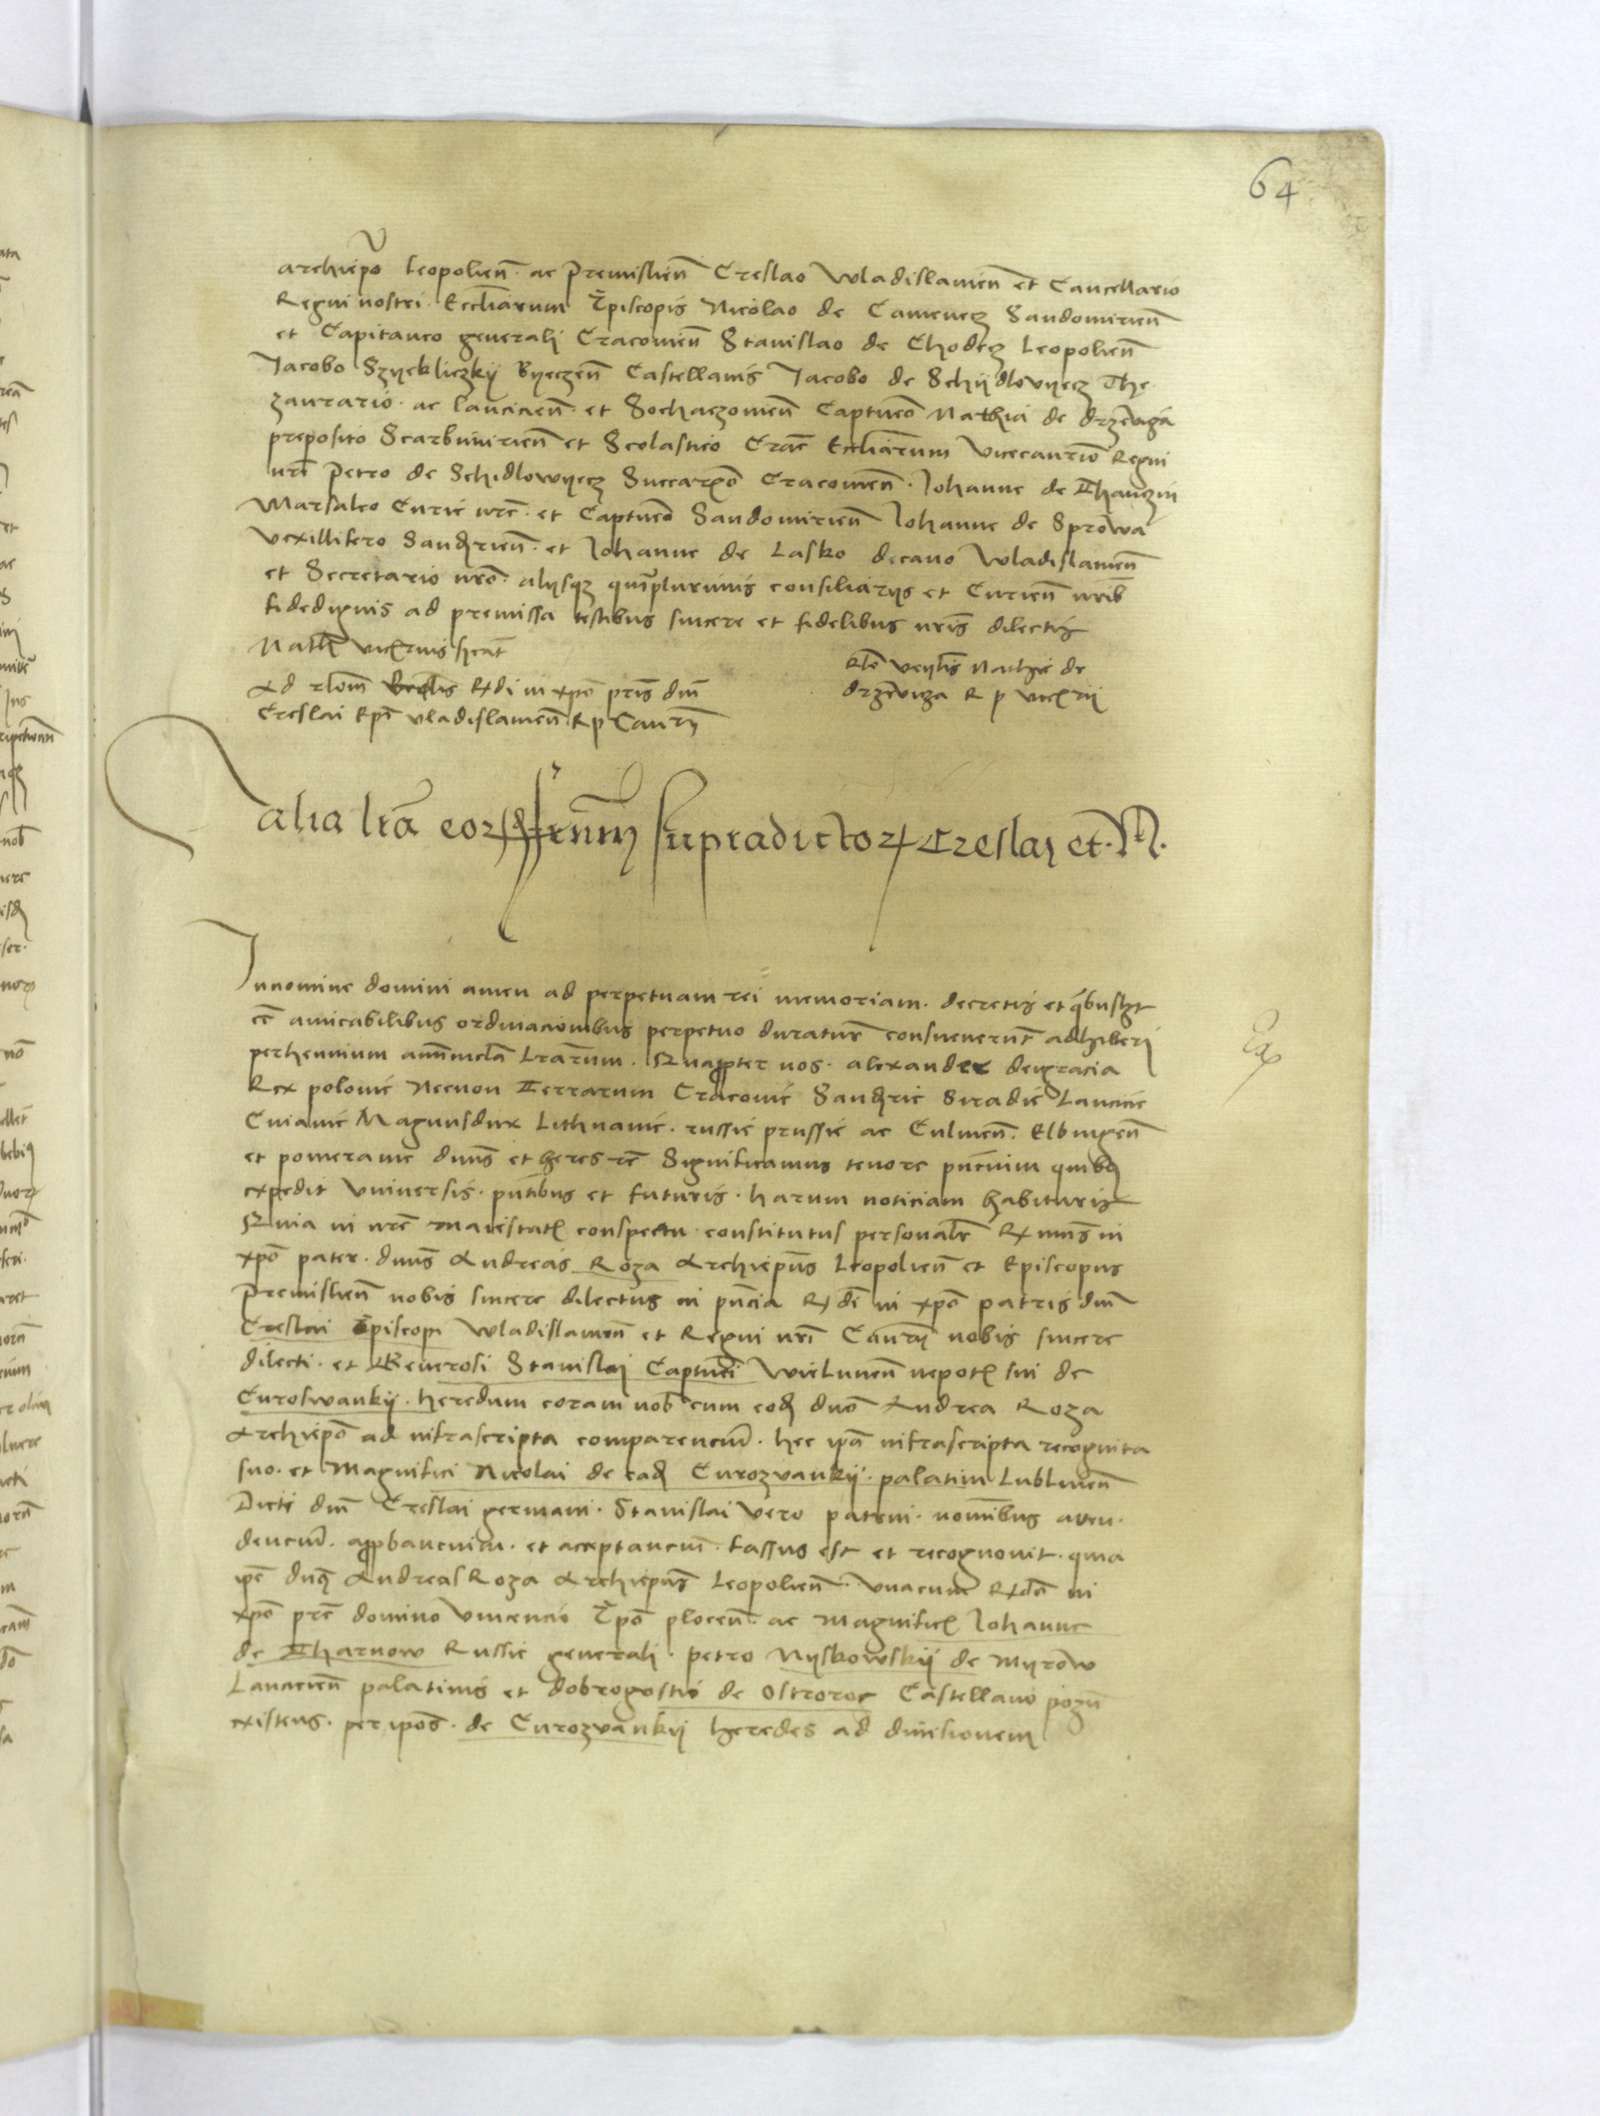 64
archiepo Leopolien ac Premislien Creslao Wladislavien et Cancellario
Regni nostri Eccliarum Episcopis Nicolao de Camenecz Sandomirien
et Capitaneo generali Cracovien Stanislao de Chodecz Leopolien
Jacobo Szyekliczky Byeczen Castellanis Jacobo de Schydlovyecz The
zaurario ac lancicien et Sochaczovien Captneo Mathia de drzevicza
preposito Scarbimirien et Scolastico Crac Eccliarum vicecancrio Regni
nri Petro de Schidlowyecz Succaro Cracovien Johanne de Thanczin
Marsalco Curie nre et Captneo Sandomirien Johanne de Sprowa
vexillifero Sandrien et Johanne de Lasko decano Wladislavien
et Secretario nro alysqz quamplurimis consiliarys et Curien nris
fidedignis ad premissa testibus sincere et fidelibus nris dilectis
Ad rlom Rdi in xpo pris dni
Creslai Epi vladislavien R p Cancry
Rlo venlis Mathie de
drzevicza R p vicecrii
alia lra eor supradictor Creslai et N.
In nomine domini amen ad perpetuam rei memoriam decretis et qbuslzt
ec amicabilibus ordinacionibus perpetuo duratur consueverunt adhiberi
perhennium Lrarum Quapter nos alexander dei gracia
Rex polonie Necnon Terrarum Cracovie Sandrie Siradie Lancicie
Cuiavie Magnus dux Lithuanie russie prussie ac Culmen Elbingen
et pomeranie dnus et heres rc Significamus tenore pncium quibus
expedit Universis pntibus et futuris harum noticiam habituris
Quia in nre maiestatis conspectu constitutus personalr Rmus in
xpo pater dnus Andreas Roza Archiepus Leopolien et Episcopus
Premislien nobis sincere dilectus in pncia Rdi in xpo patris dni
Creslai Episcopi Wladislavien et Regni nri Cancrii nobis sincere
dilecti et Generosi Stanislai Captnei Wielunen nepotis sui de
Curoswanky heredum coram nob cum eod dno Andrea Roza
Archiepo ad infrascripta comparencium hec ipa infrascripta recognita
suo et Magnifici Nicolai de ead Curozvanky palatini Lublinen
Dicti dni Creslai germani Stanislai vero patrui nominibus atten
dencium appbancium et acceptancium fassus est et recognovit quia
ipe dnus Andreas Roza Archiepus Leopolien unacum Rdo in
xpo pre domino Vincencio Epo plocen ac Magnificis Johanne
de Tharnow Russie generali petro Myskowsky de Myrow
Lancicien palatinis et dobrogostio de Ostrorog Castellano pozn
existens per ipos de Curozvanky heredes ad divisionem